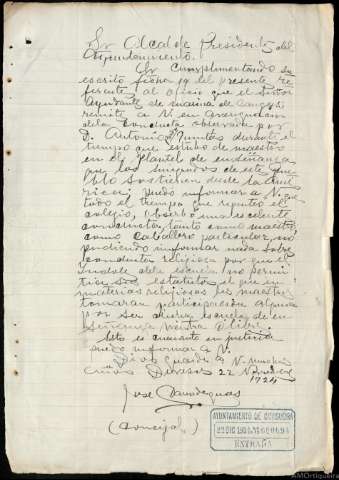 Sr Alcalde Presidente del
Ayuntamiento.
Sr Cumplimentando su
escrito fecha 19 del presente re
ferente al oficio que el señor
Ayudante de marina de
remite a V en
de la conducta observada por
D. Antonio durante el
tiempo que estubo de maestro
en el Plantel de enseñanza
que los emigrados de este pue
blo sostienen desde la Amé
rica; puedo informar a V. que
todo el tiempo que regentó el
colegio, observó una escelente
conducta, tanto como maestro
como Caballero particular, no
pudiendo informar nada sobre
conducta religiosa por que el
indole de la escuela no permi
tian sus estatutos el que en
materias religiosas su maestro
tomaran participación alguna
por ser dicha escuela de en
señanza neutra o libre.
Esto es cuanto en justicia
puedo informar a V.
Dios guarde a V. muchos
años Devesos 22 N
1924
José
(Concejal)
AYUNTAMIENTO DE ORTIGUEIRA
ENTRADA
AMOrtigueira